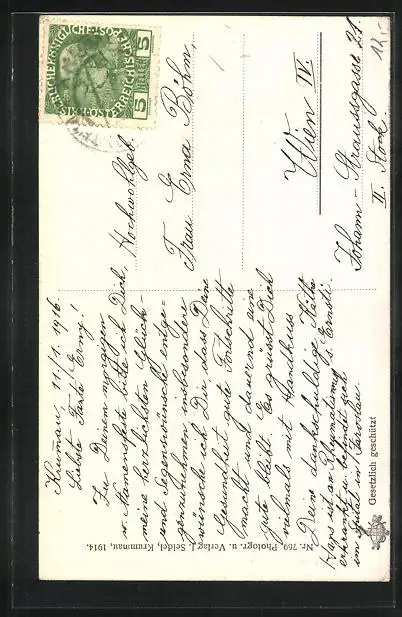 Krumau, 11./1. 1916.
Liebste Tante Erny!
Zu Deinem morgigen
Namensfeste bitte ich Dich,
meine herzlichsten Glück-
und Segenswünsche entge-
genzunehmen insbesondere
wünsche ich Dir dass Deine
Gesundheit gute Fortschritte
macht und dauernd eine
gute bleibt. Es grüsst Dich
vielmals mit Handkuss
Deine dankschuldige Käthe
ist an
erkrankt u. befindet sich
im Spital in
Hochwohlgeb.
Frau Erna Böhm,
Wien IV.
Johann-Straussgasse 21.
II. Stock.
5 HELLER 5
Nr. 769. Photogr. u. Verlag J. Seidel, Krummau, 1914.
Gesetzlich geschützt